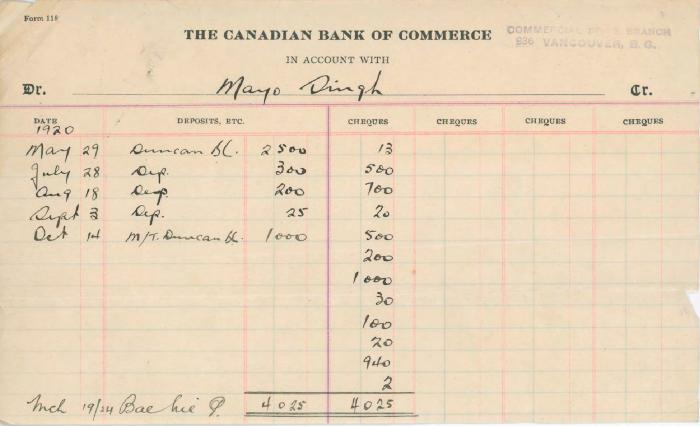 Form 118
THE CANADIAN BANK OF COMMERCE
COMMERCIAL BRANCH
936 VANCOUVER, B. C.
IN ACCOUNT WITH
Dr. Mayo Singh Cr.
DATE DEPOSITS, ETC. CHEQUES CHEQUES CHEQUES CHEQUES
1920
May 29 Duncan BC. 2500 13
July 28 Dep. 300 500
Aug 18 Dep. 200 700
Sept 3 Dep. 25 20
Oct 14 M/T. Duncan BC. 1000 500
200
1000
30
100
20
940
2
Mch 19/24 4025 4025